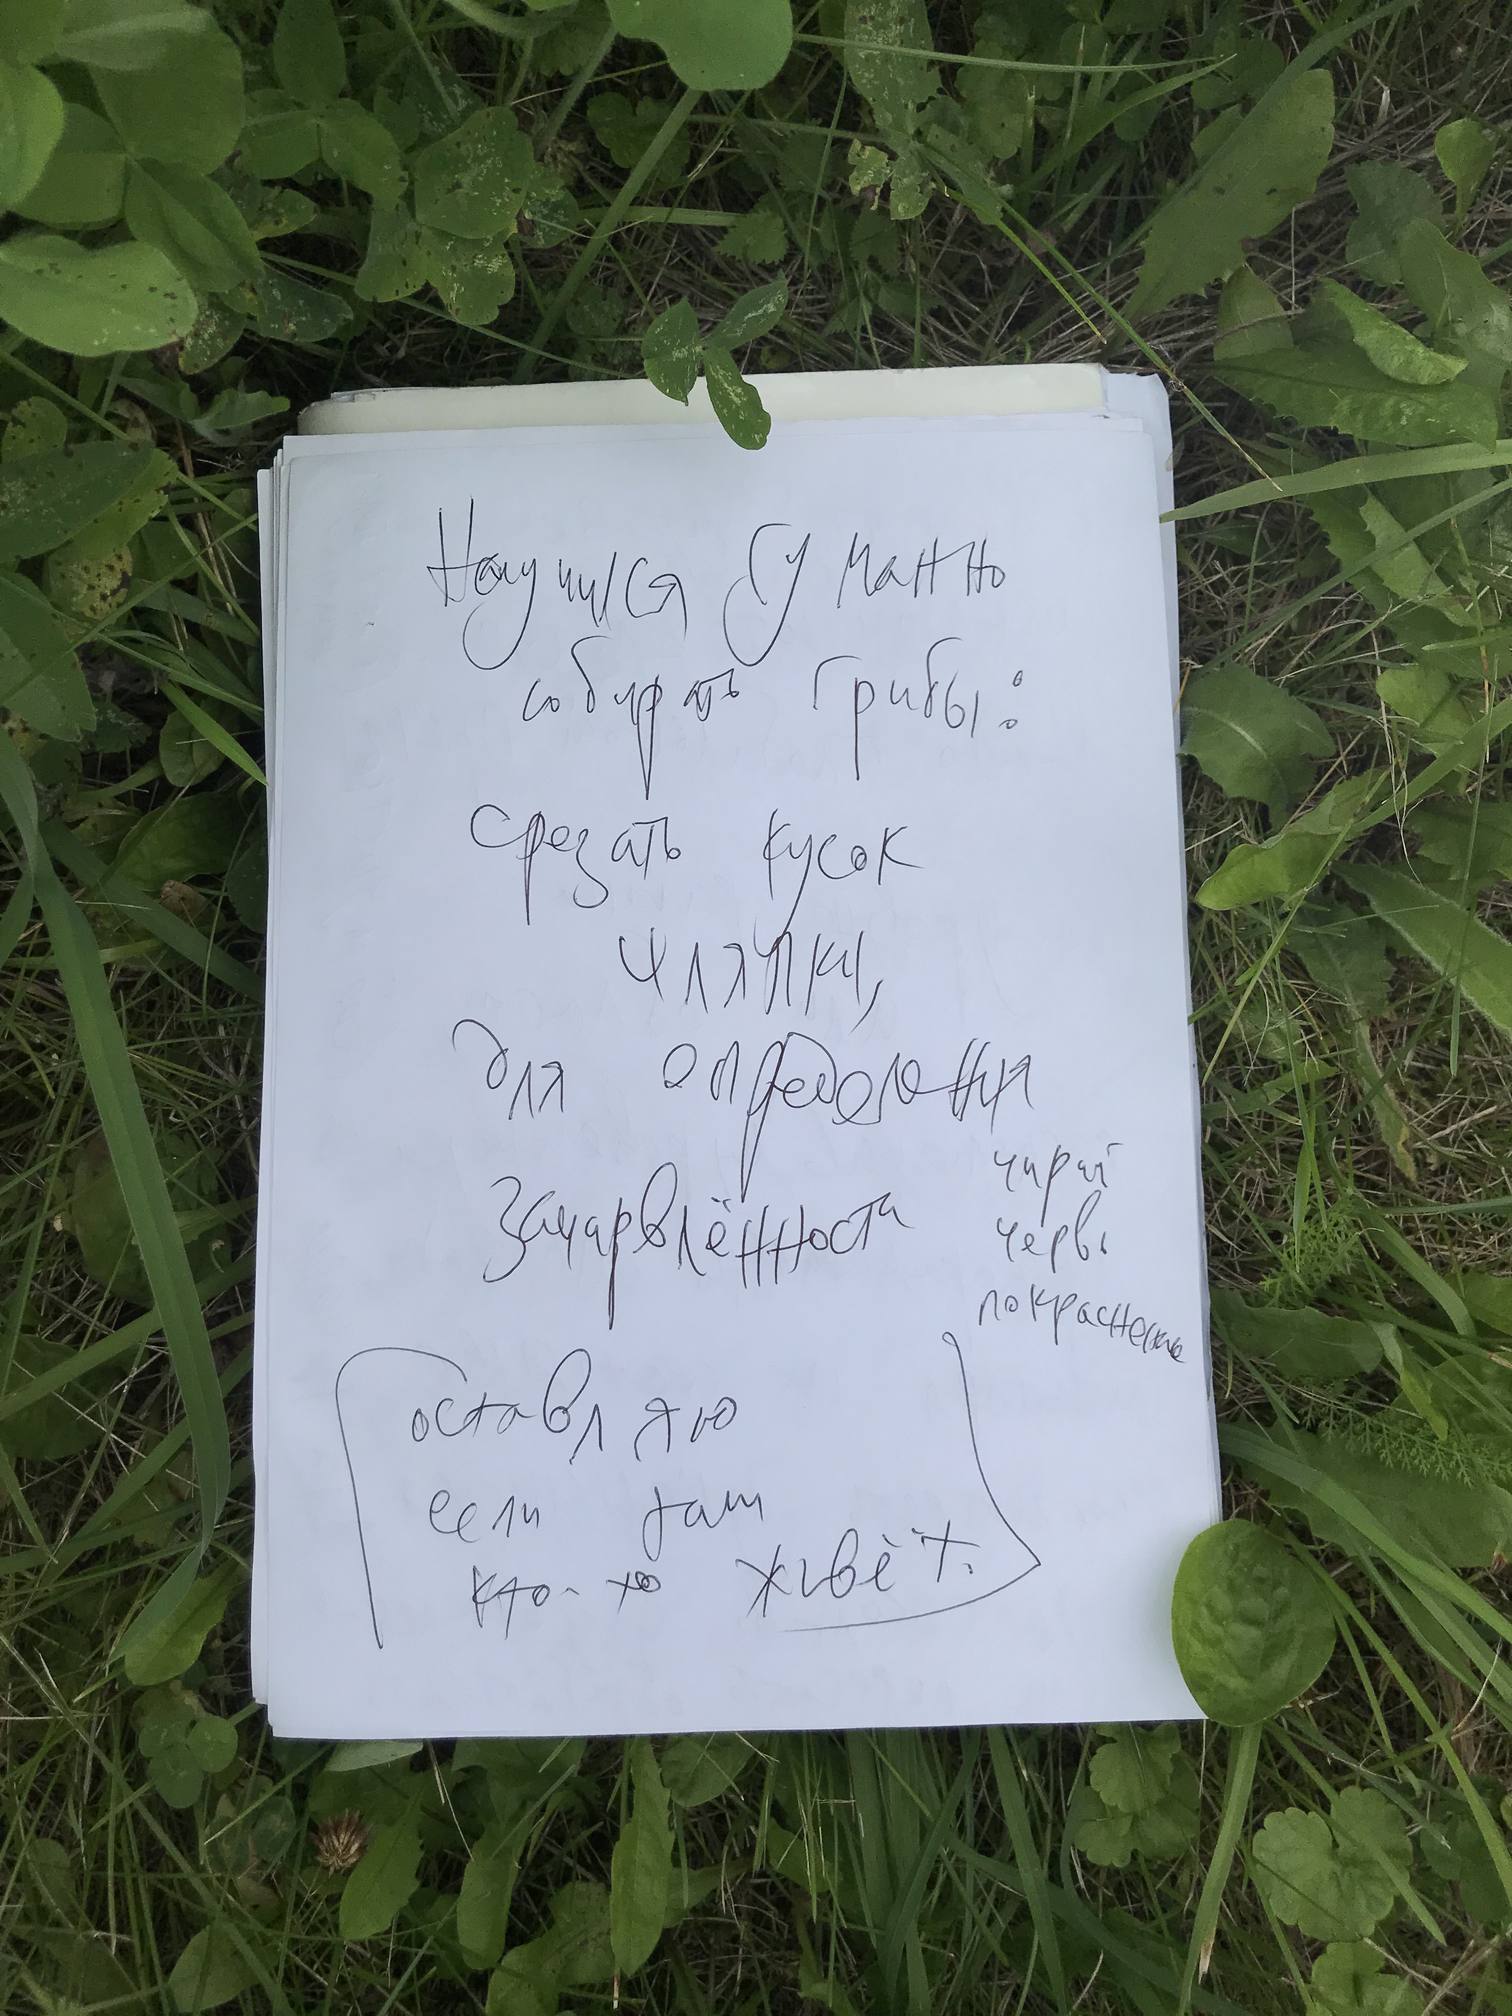 Научился гуманно
собирать грибы:
срезать кусок
шляпки,
для определения
зачарвлённости
чирай
червь
покраснение
оставляю
если там
кто-то живёт.